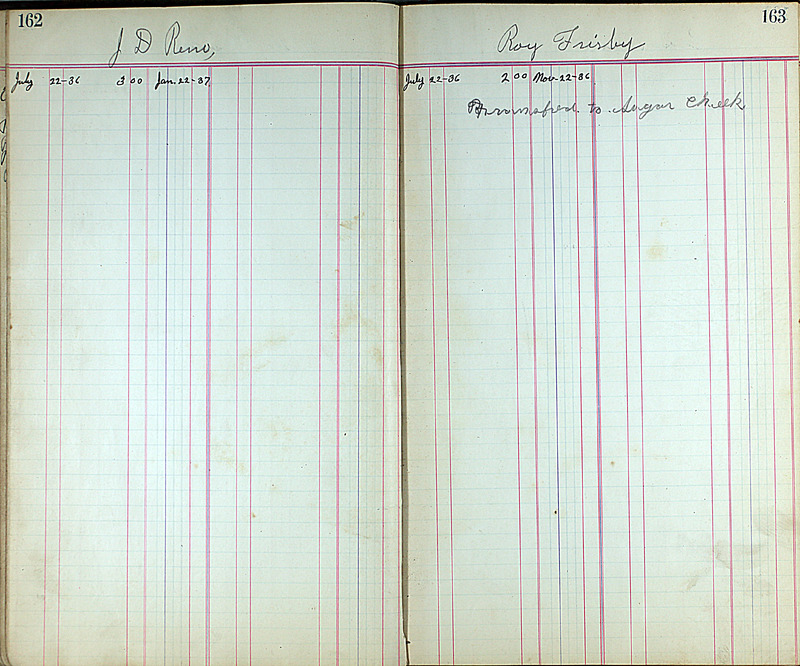 162
J D Reno,
July 22-36 3 00 Jan. 22-37
163
Roy Frisby
July 22-36 2 00 Nov 22-36
to Sugar Creek